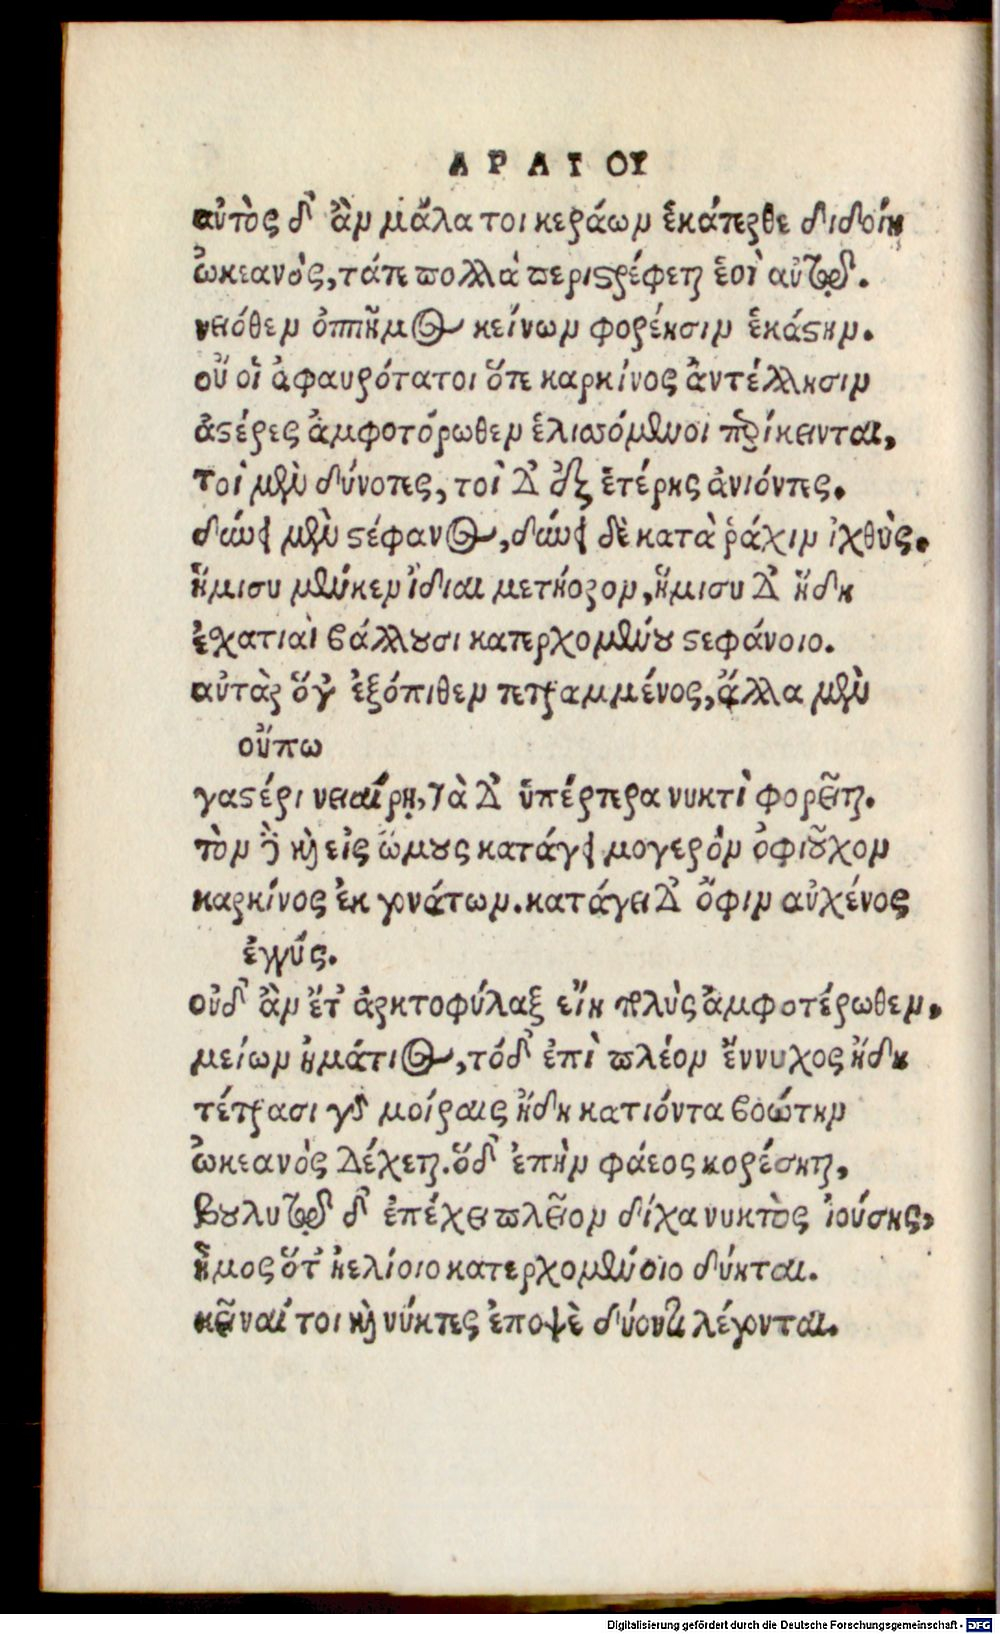 ΑΡΑΤΟΥ
αὐτὸς δ' ἂν μάλα τοι κεράων ἑκάτερθε διδοίη
ὠκεανὸς, τάτε πολλὰ περιστρέφεται ἑοῖ αὐτῷ.
νειόθεν ὁππῆμος κείνων φορέησιν ἑκάστην.
οὔ οἱ ἀφαυρότατοι ὅτε καρκίνος ἀντέλλησιν
ἀστέρες ἀμφοτέρωθεν ἑλισσόμενοι περίκεινται,
τοὶ μὲν δύνοντες, τοὶ δ' ἐξ ἑτέρης ἀνιόντες.
δύνει μὲν στέφανος, δύνει δὲ κατὰ ῥάχιν ἰχθὺς.
ἥμισυ μὲν κεν ἴδιαι μετήορον, ἥμισυ δ' ἤδη
ἐσχατιαὶ βάλλουσι κατερχομένου στεφάνοιο.
αὐτὰρ ὅγ' ἐξόπιθεν τετραμμένος, ἄλλα μὲν
οὔπω
γαστέρι νειαίρῃ, τὰ δ' ὑπέρτερα νυκτὶ φορεῖται.
τὸν δὲ καὶ εἰς ὤμους κατάγει μογερὸν ὀφιοῦχον
καρκίνος ἐκ γονάτων. κατάγει δ' ὄφιν αὐχένος
ἐγγύς.
οὐδ' ἂν ἔτ' ἀρκτοφύλαξ εἴη πολὺς ἀμφοτέρωθεν,
μείων ἠμάτιος, τόδ' ἐπὶ πλέον ἔννυχος ἤδη
τέτρασι γὰρ μοίραις ἤδη κατιόντα βοώτην
ὠκεανὸς δέχεται. ὅδ' ἐπὴν φάεος κορέσηται,
βουλυτῷ δ' ἐπέχει πλεῖον δίχα νυκτὸς ἰούσης,
ἦμος ὅτ' ἠελίοιο κατερχομένοιο δύηται.
κεῖναί τοι καὶ νύκτες ἐποψὲ δύοντι λέγονται.
Digitalisierung gefördert durch die Deutsche Forschungsgemeinschaft - DFG